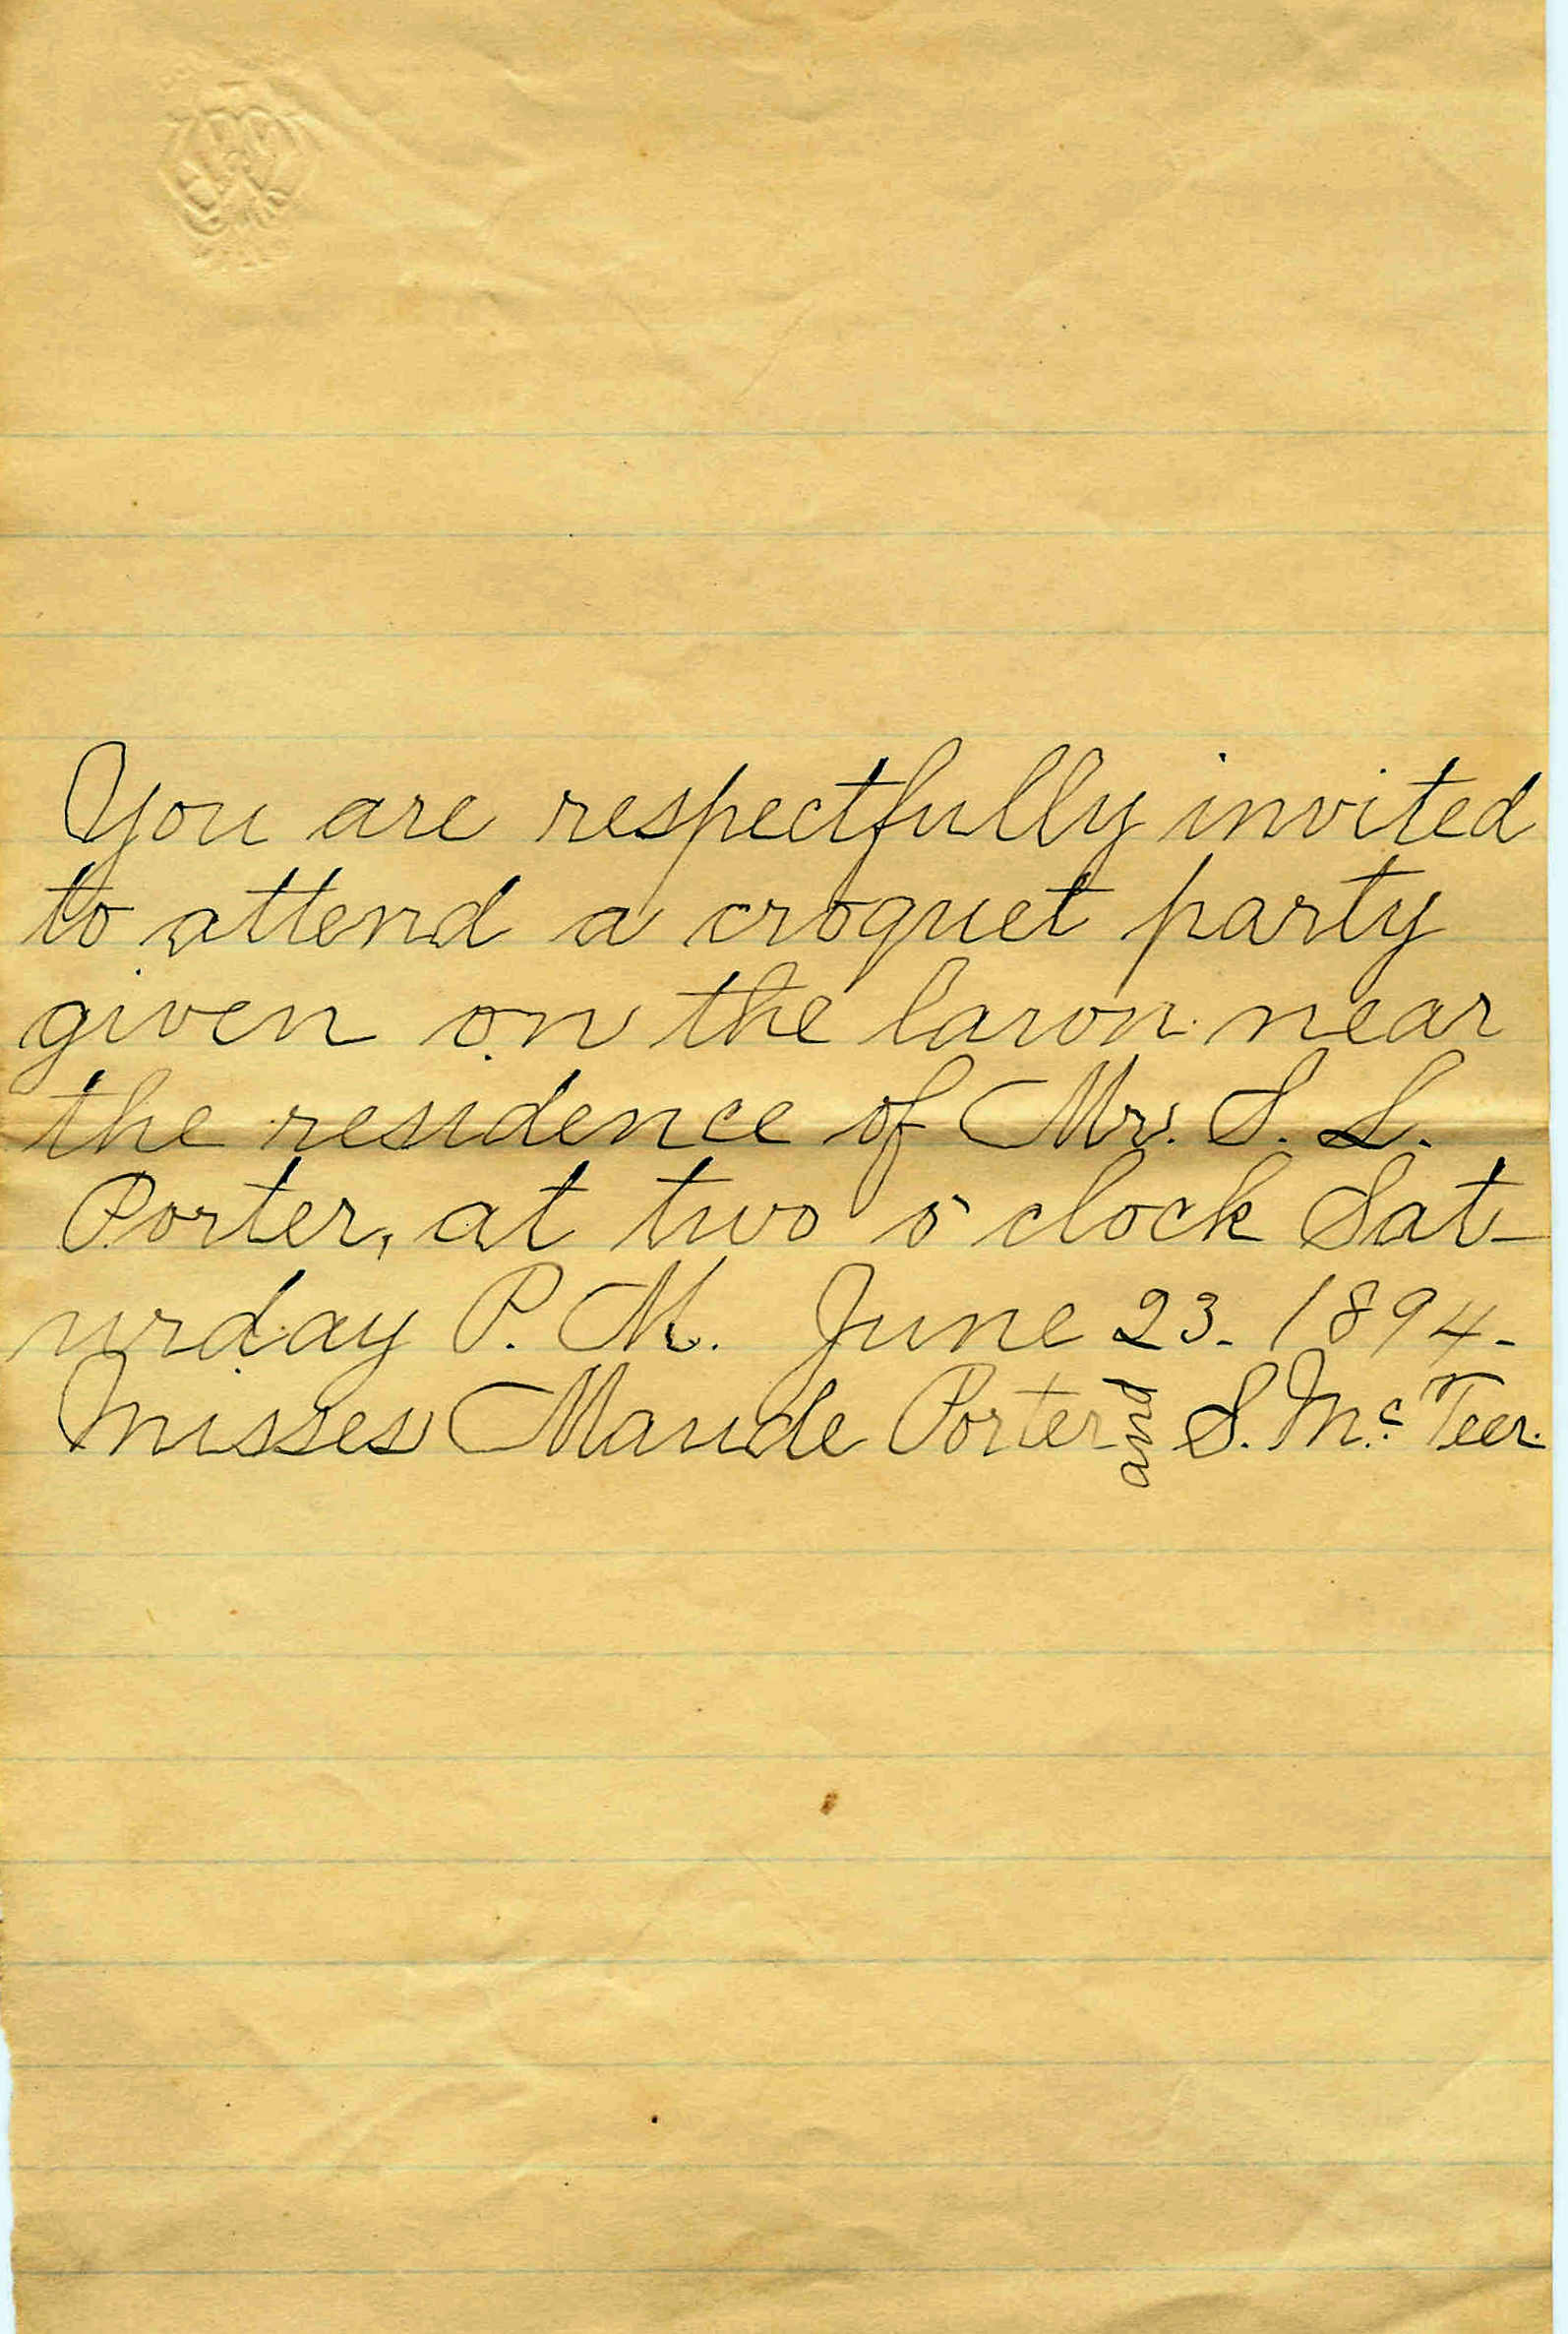 You are respectfully invited
to attend a croquet party
given on the lawn near
the residence of Mr. S. L.
Porter, at two o'clock Sat-
urday P. M. June 23. 1894.
Misses Maude Porter and S. Mc Teer.